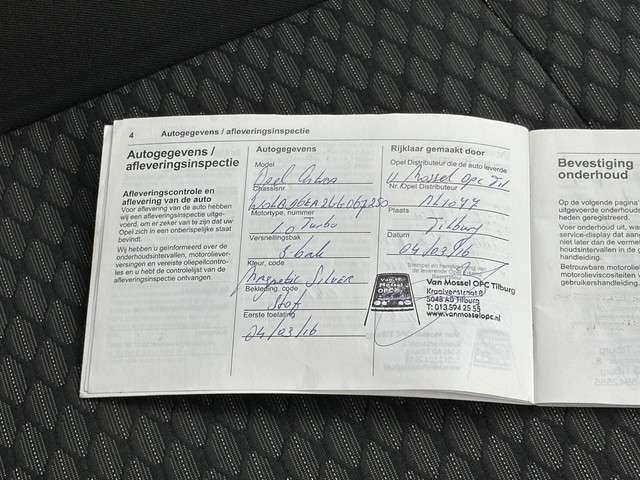 4 Autogegevens / afleveringsinspectie
Autogegevens /
afleveringsinspectie
Afleveringscontrole en
aflevering van de auto
Voor aflevering van de auto hebben
wij een afleveringsinspectie uitge-
voerd, om er zeker van te zijn dat uw
Opel zich in een onberispelijke staat
bevindt.
Wij hebben u geïnformeerd over de
onderhoudsintervallen, motorolever-
versingen en vereiste oliepeilcontro-
les en u hebt de controlelijst van de
afleveringsinspectie ontvangen.
Autogegevens
Model
Opel
Chassisnr.
Motortype, nummer
1.0 Turbo
Versnellingsbak
Kleur, code
Magnetic Silver
Bekleding, code
Stof
Eerste toelating
04/03/16
Rijklaar gemaakt door
Opel Distributeur die de auto leverde
v Mossel Opc Til
Nr. Opel Distributeur
Plaats
Tilburg
Datum
04/03/16
Stempel en handtekening van
de leverende Opel
Van
Mossel
OPC
Van Mossel OPC Tilburg
Kraaivenstraat 8
5048 AB Tilburg
T: 013 594 25 55
www.vanmosselopc.nl
Bevestiging
onderhoud
Op de volgende pagina'
uitgevoerde onderhoud
heden geregistreerd.
Voer onderhoud uit, wa
service-display dat aan
niet later dan de verme
houdsintervallen in de g
handleiding.
Betrouwbare motorolie
motorolieviscositeiten v
gebruikershandleiding.